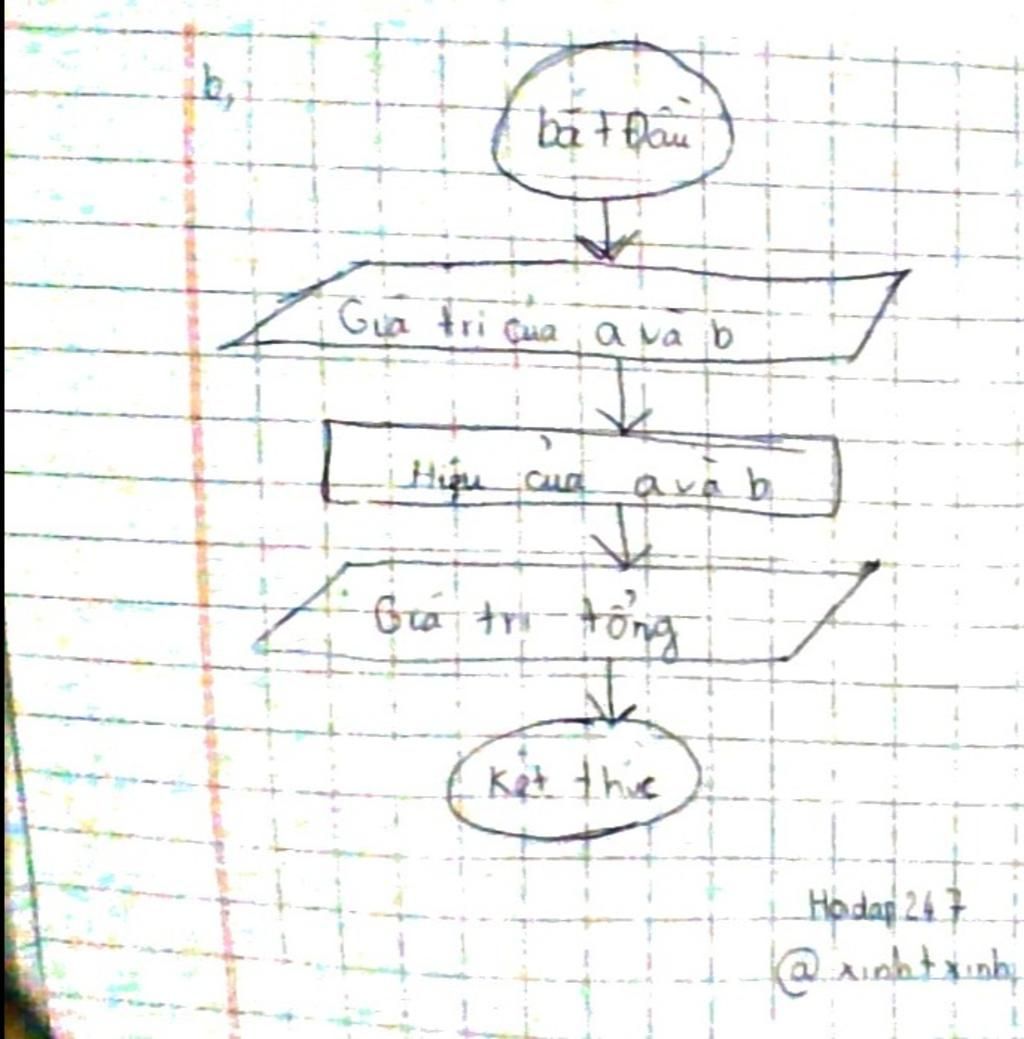 b,
bắt Đầu
Giá trị của a và b
Hiệu của a và b
Giá trị tổng
Kết thúc
Hoidap247
@xinhtxinh